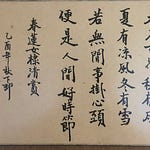 夏有凉風冬有雪
若無閒事掛心頭
便是人間好時節
春蓮女棣清賞
乙酉年